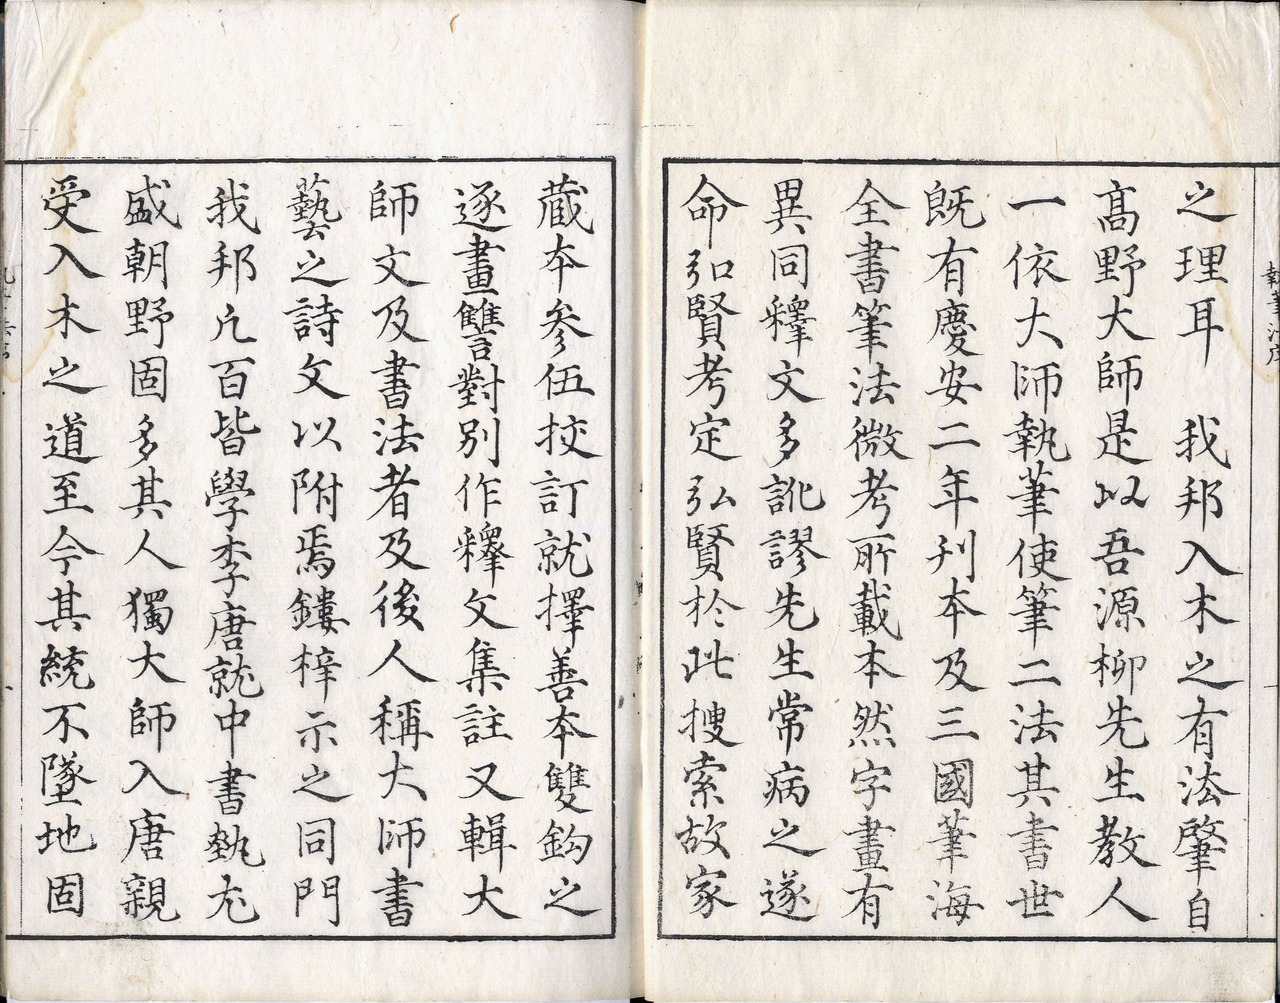 執筆法序
之理耳　我邦入木之有法肇自
髙野大師是以吾源柳先生教人
一依大師執筆使筆二法其書世
既有慶安二年刊本及三國筆海
全書筆法微考所載本然字畫有
異同釋文多訛謬先生常病之遂
命弘賢考定弘賢於此搜索故家
藏本參伍挍訂就擇善本雙鈎之
逐畫讐對別作釋文集註又輯大
師文及書法者及後人稱大師書
藝之詩文以附焉鏤梓示之同門
我邦凢百皆學李唐就中書執尤
盛朝野固多其人獨大師入唐親
受入木之道至今其統不墜地固